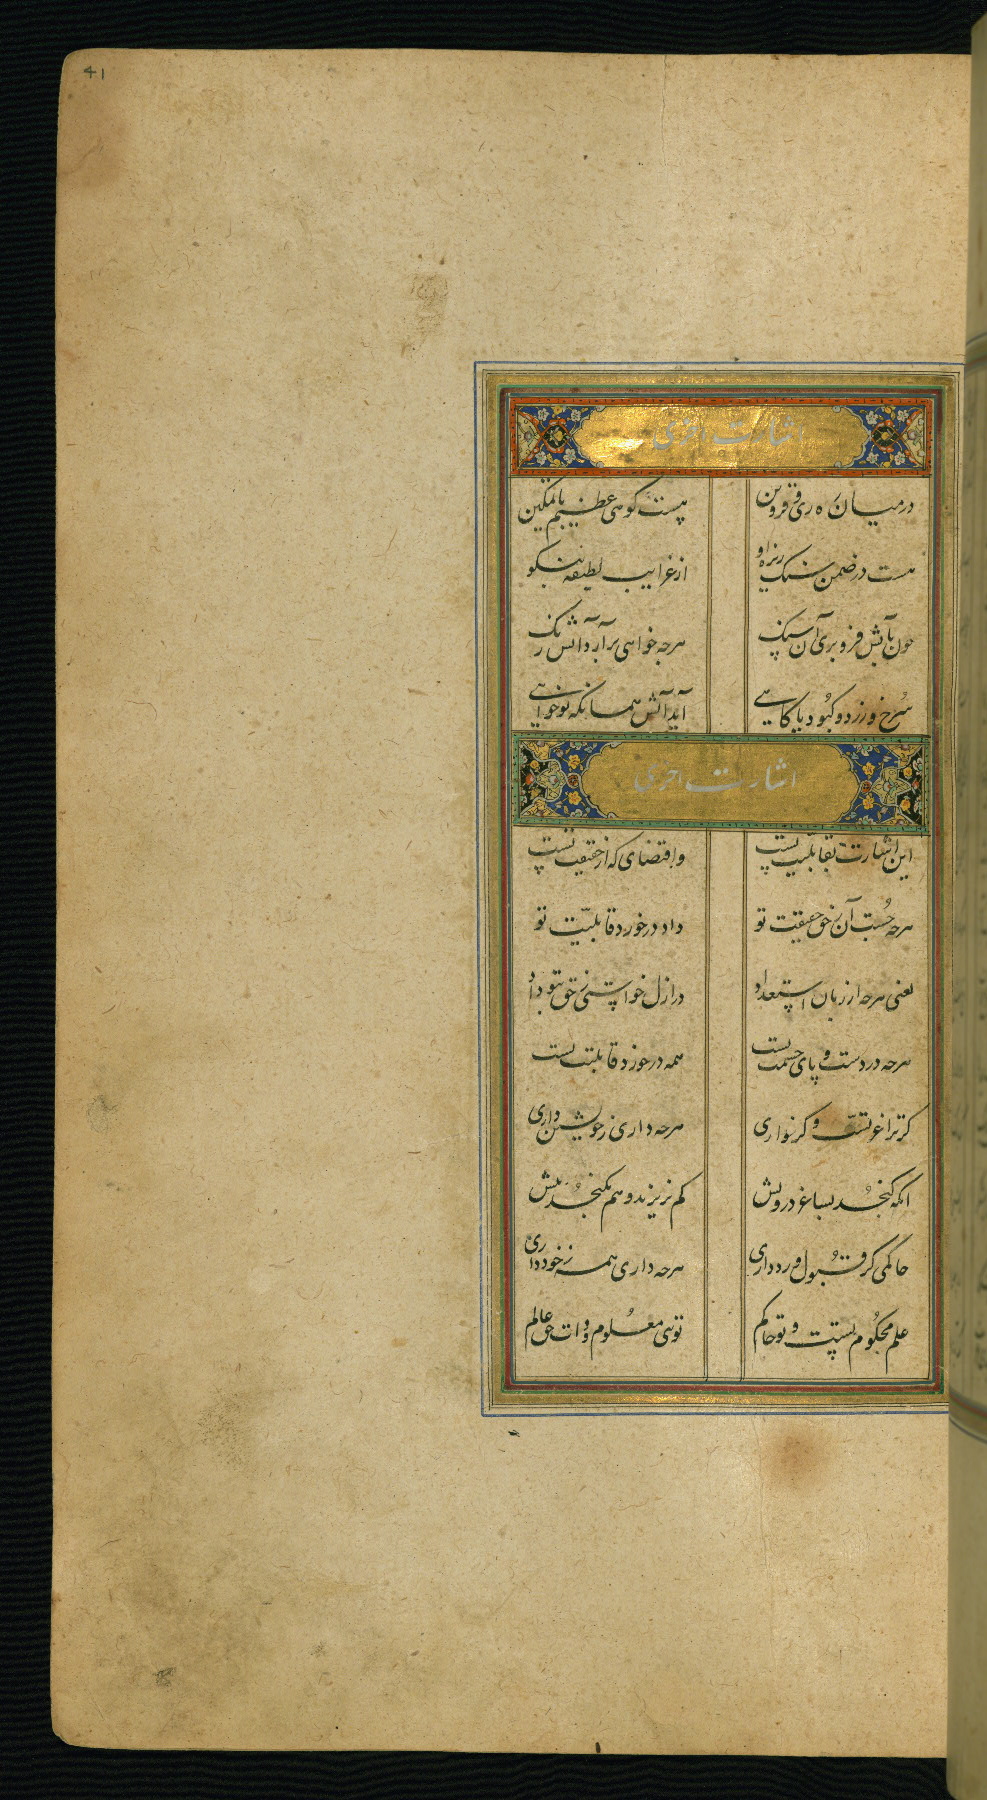 41
اشارت اخری
درمیان ره ری و قزوین هست کوهی عظیم با تمکین
هست در ضمن سنگ ریزه او از غرایب لطیفه نیکو
چون بآتش فرو بری آن سنگ هرچه خواهی برآرد آتش رنگ
سرخ و زرد و کبود یا کاهی آید آتش همانکه تو خواهی
اشارت اخری
این اشارت بقابلیت تست واقتضای که از حقیقت تست
هرچه جست آن ز حق حقیقت تو داد در خورد قابلیت تو
یعنی هرچه از زبان استعداد در ازل خواستی ز حق بتو داد
هرچه در دست و پای همت تست همه در خورد قابلیت تست
گر ترا عزتست و گر خواری هرچه داری ز خویشتن داری
آنکه گنجد بساغر درویش کم نریزند و هم نگنجد بیش
حاکمی گر قبول و رد داری هرچه داری همه ز خود داری
علم محکوم تست و تو حاکم توهی معلوم و ذات حق عالم